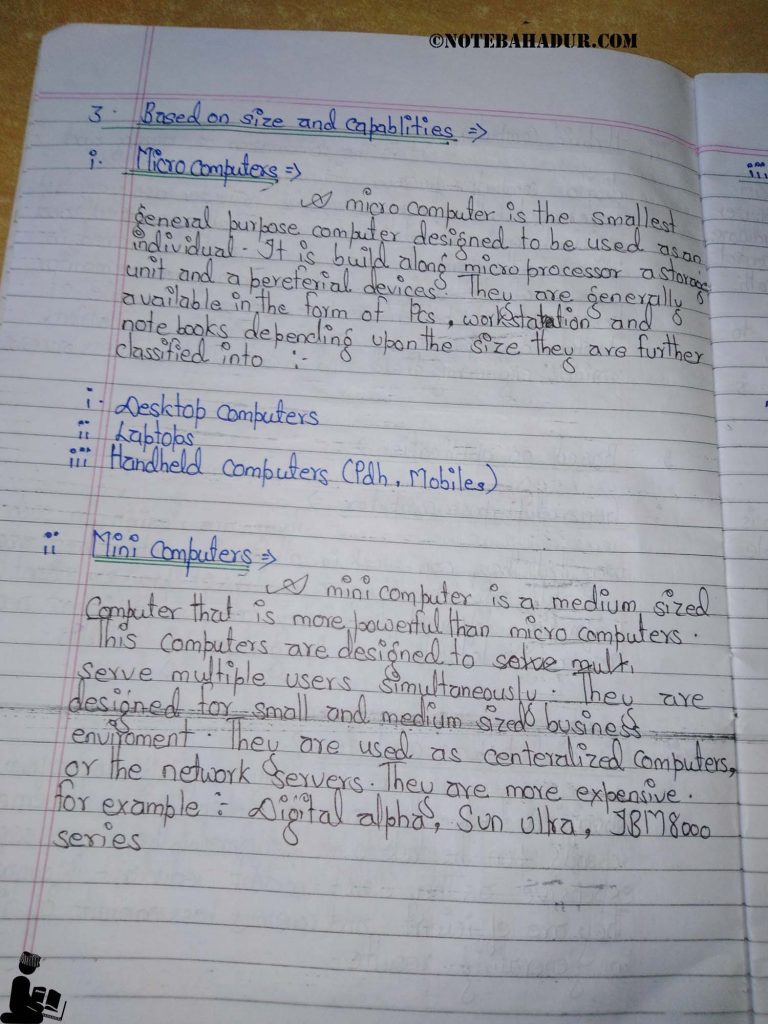 ©NOTEBAHADUR.COM
3. Based on size and capablities ⇒
i. Microcomputers ⇒
A micro computer is the smallest
general purpose computer designed to be used as an
individual. It is build along microprocessor a storage
unit and a pereferial devices. They are generally
available in the form of PCs, workstatation and
notebooks depending upon the size they are further
classified into :-
i. Desktop computers
ii Laptops
iii Handheld computers (Pdh, Mobiles)
ii Mini Computers ⇒
A mini computer is a medium sized
Computer that is more powerful than micro computers.
This computers are designed to serve mult.
serve multiple users simultaneously. They are
designed for small and medium sized business
enviroment. They are used as centeralized computers,
or the network servers. They are more expensive.
for example :- Digital alpha, Sun Ulta, IBM8000
series
iii